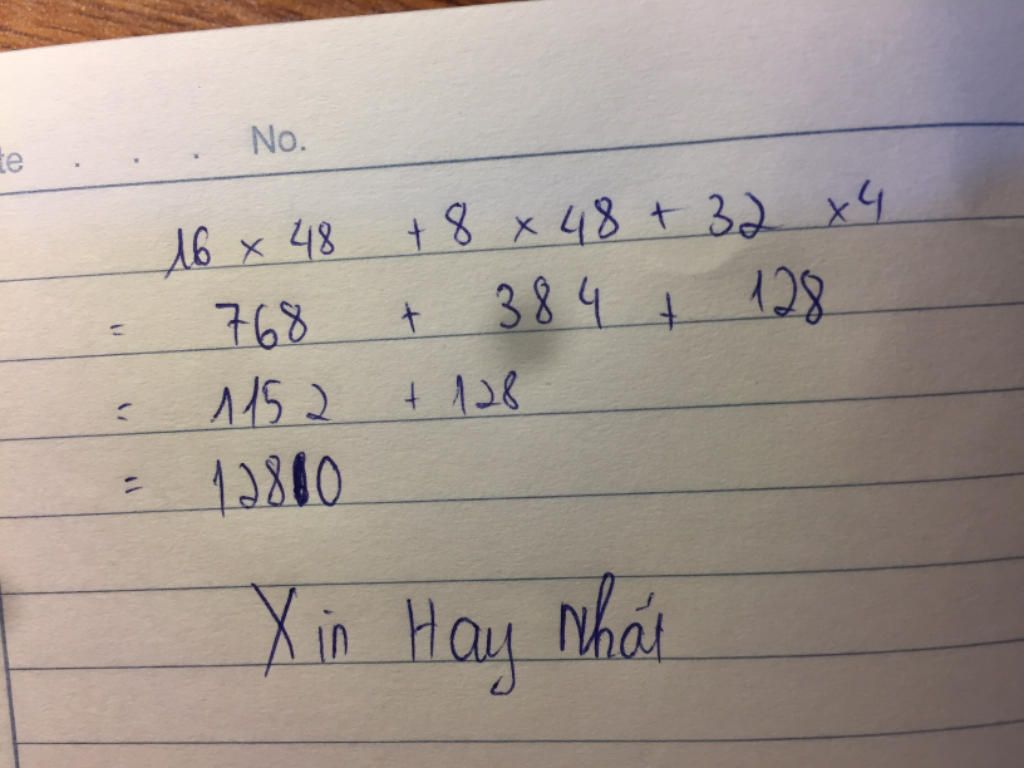 te . . . No.
16 × 48 + 8 × 48 + 32 × 4
= 768 + 384 + 128
= 1152 + 128
= 1280
Xin Hay Nhát